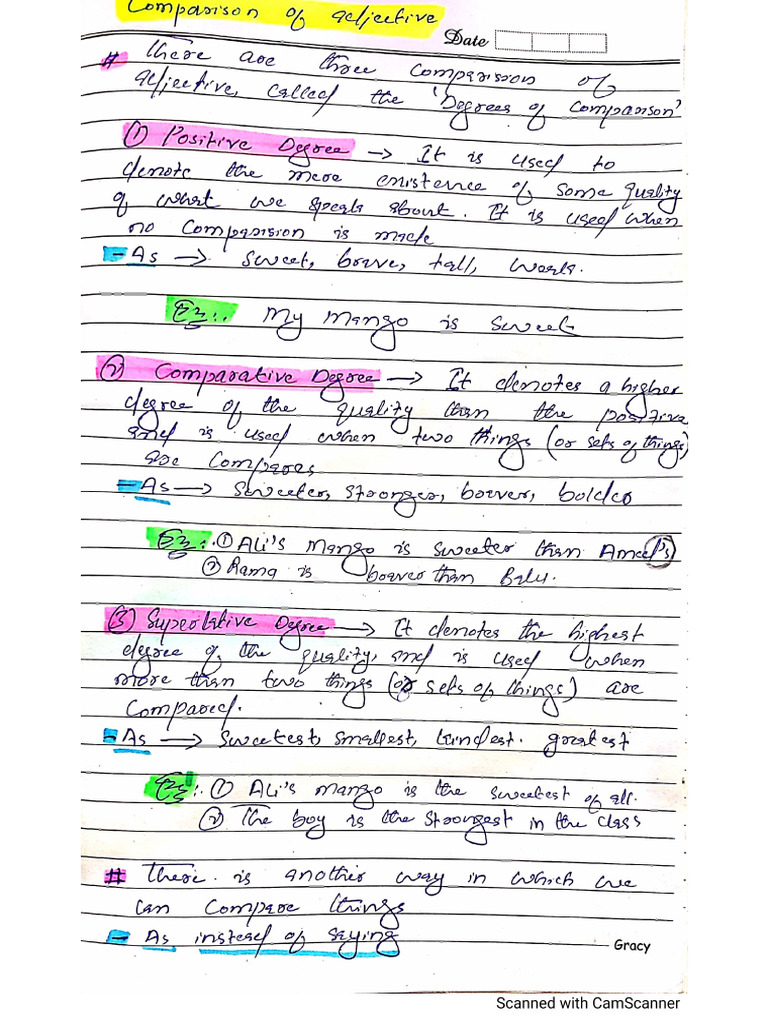 Comparison of adjective
Date
# There are three comparison of
adjective, called the 'Degrees of Comparison'
① Positive Degree → It is used to
denote the mere existence of some quality
of what we speak about. It is used when
no comparision is made
- As → Sweet, brave, tall, weak.
Ex:. My mango is sweet
② Comparative Degree → It denotes a higher
degree of the quality than the positive
and is used when two things (or sets of things)
are Compares
- As → Sweeter, stronger, braver, bolder
Ex:. ① Ali's Mango is sweeter than Ameel's
② Rama is braver than Balu.
③ Superlative Degree → It denotes the highest
degree of the quality, and is used when
more than two things (or sets of things) are
Compared.
- As → Sweetest, smallest, kindest. greatest
Ex:. ① Ali's mango is the sweetest of all.
② The boy is the strongest in the class
# There is another way in which we
can compare things
- As instead of saying
Gracy
Scanned with CamScanner